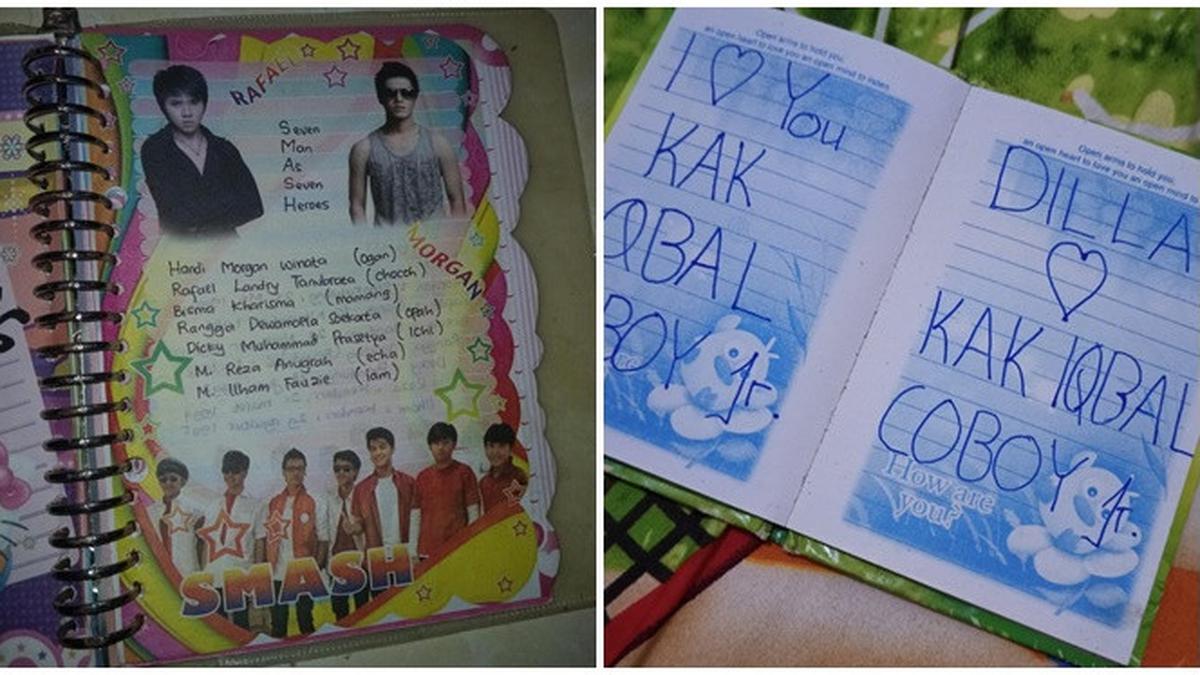 RAFAEL
Seven
Man
As
Seven
Heroes
MORGAN
Handi Morgan Winata (Ogan)
Rafael Landry Tanubrata (chocoh)
Bisma Kharisma (mamang)
Rangga Dewamoela Soekarta (opah)
Dicky Muhammad Prasetya (Ichi)
M. Reza Anugrah (echa)
M. Ilham Fauzie (iam)
SMASH
Open arms to hold you.
an open heart to love you an open mind to listen
I ♡ You
KAK
IQBAL
BOY Jr.
Open arms to hold you.
an open heart to love you an open mind
DILLA
♡
KAK IQBAL
COBOY Jr.
How are
you?